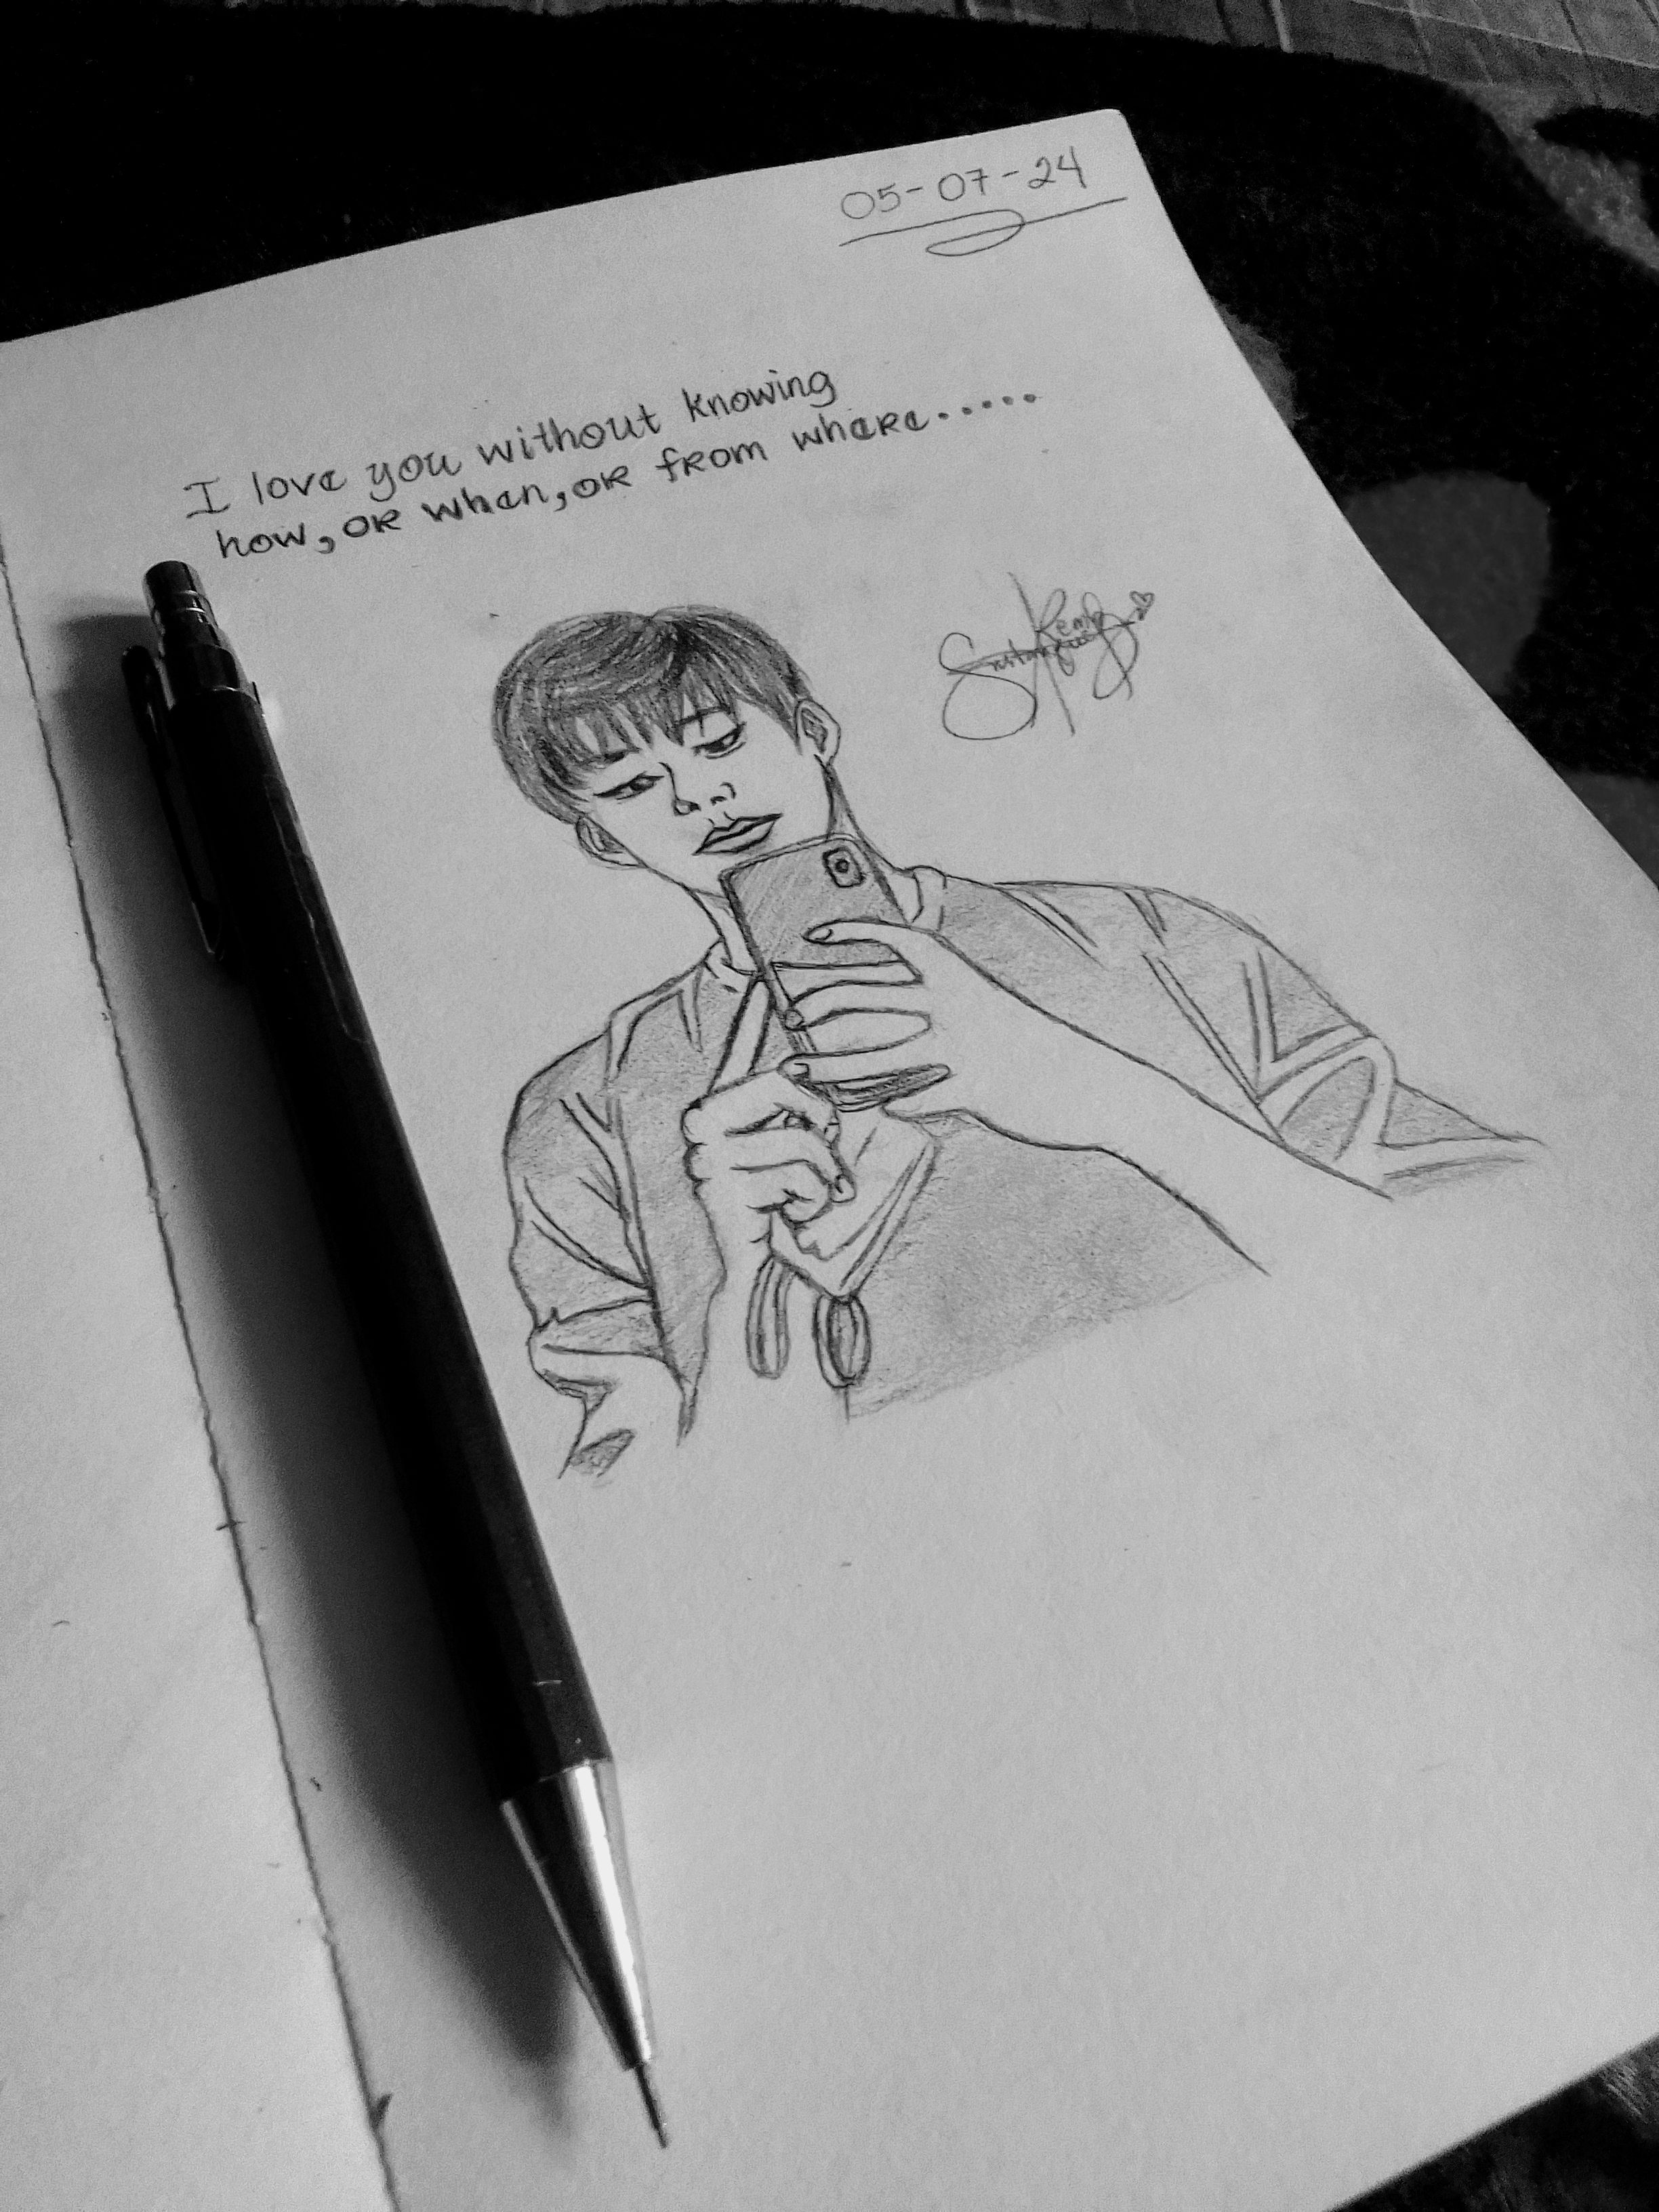 05-07-24
I love you without knowing
how, or when, or from where.....